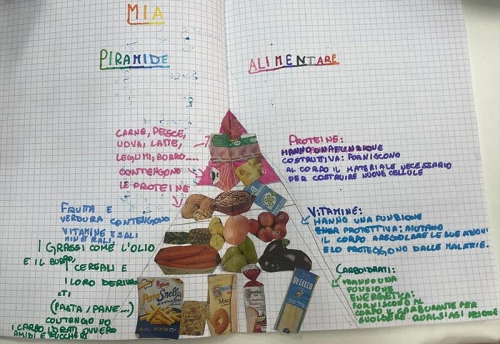 MIA
PIRAMIDE
ALIMENTARE
CARNE, PESCE,
UOVA, LATTE,
LEGUMI, BURRO....
CONTENGONO
LE PROTEINE
PROTEINE:
HANNO UNA FUNZIONE
COSTRUTTIVA: FORNISCONO
AL CORPO IL MATERIALE NECESSARIO
PER COSTRUIRE NUOVE CELLULE
FRUTTA E
VERDURA CONTENGONO
VITAMINE E SALI
MINERALI
VITAMINE:
HANNO UNA FUNZIONE
PROTETTIVA: AIUTANO
IL CORPO A REGOLARE LE SUE
E LO PROTEGGONO DALLE MALATIE.
I GRASSI COME L'OLIO
E IL BURRO,
I CEREALI E
I LORO DERIVA
TI
(PASTA / PANE...)
CONTENGONO
I CARBOIDRATI OVVERO
AMIDI E ZUCCHERI
CARBOIDRATI:
HANNO UNA
FUNZIONE
ENERGETICA:
FORNISCONO AL
CORPO IL CARBURANTE PER
SVOLGERE QUALSIASI
DE CECCO